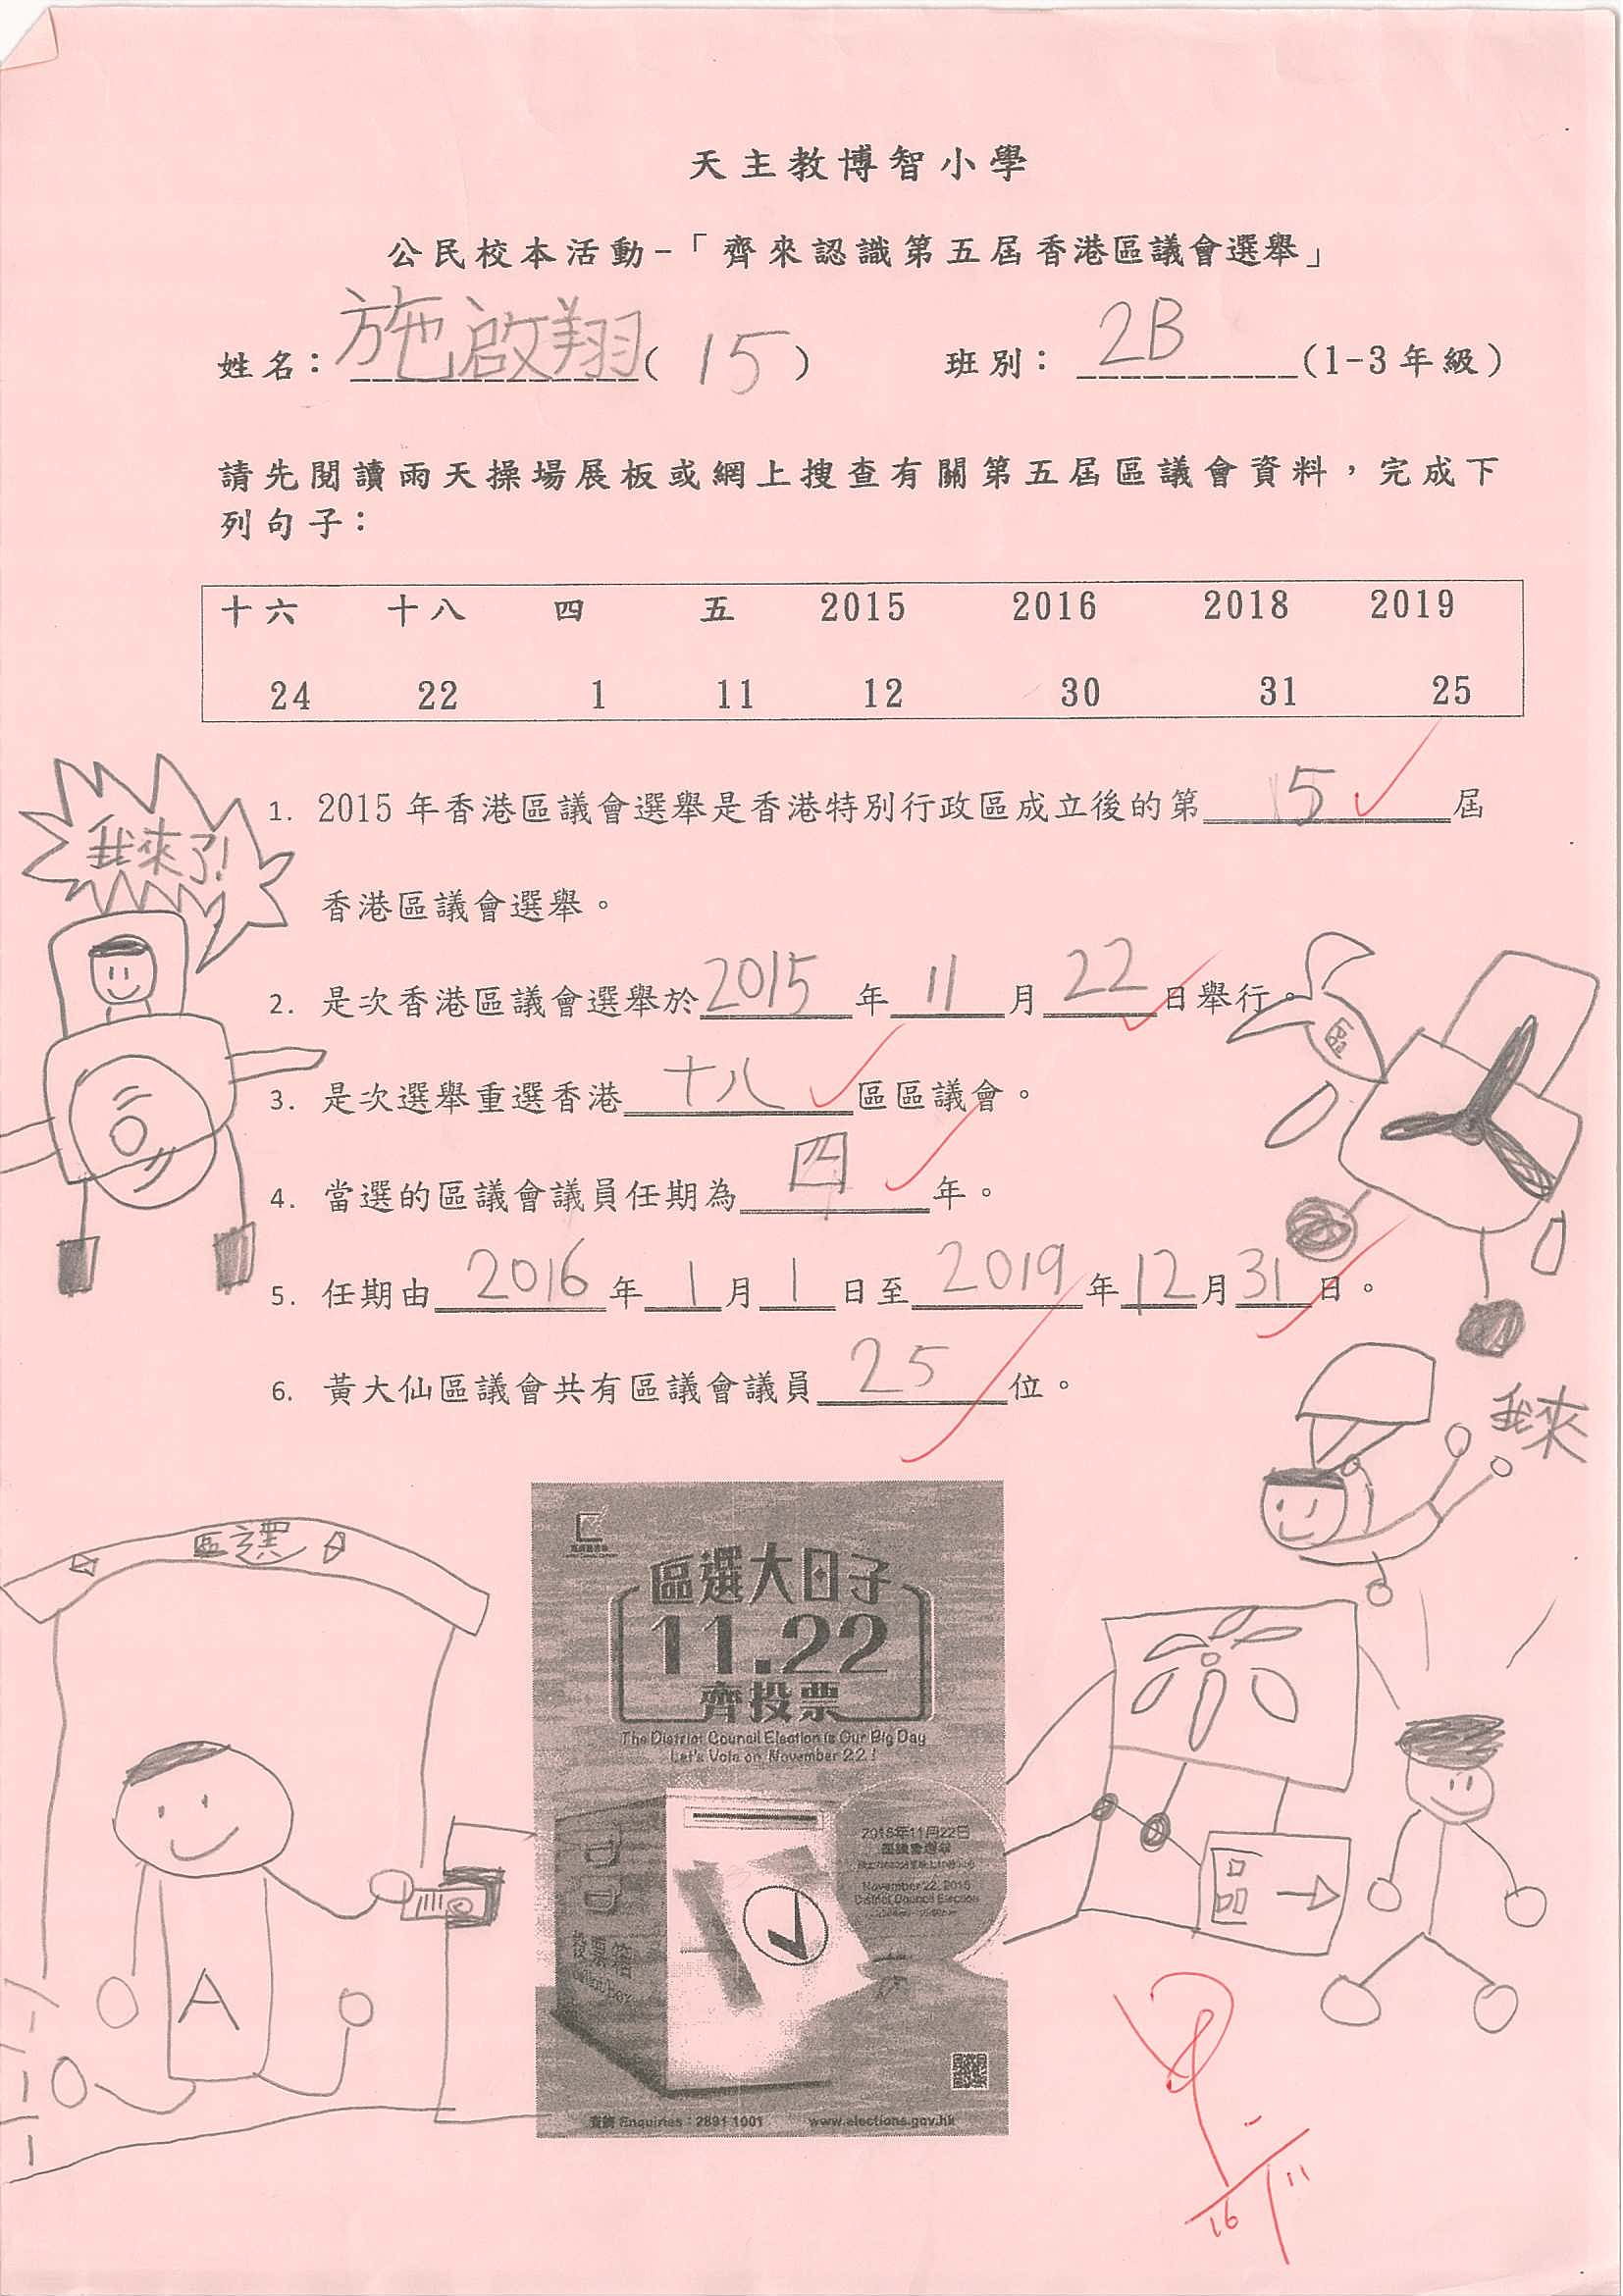 天主教博智小學
公民校本活動-「齊來認識第五屆香港區議會選舉」
姓名：施啟翔(15) 班別：2B(1-3年級)
請先閱讀雨天操場展板或網上搜查有關第五屆區議會資料，完成下
列句子：
十六 十八 四 五 2015 2016 2018 2019
24 22 1 11 12 30 31 25
我來了!
1. 2015年香港區議會選舉是香港特別行政區成立後的第5屆
香港區議會選舉。
2. 是次香港區議會選舉於2015年11月22日舉行。
區
3. 是次選舉重選香港十八區區議會。
4. 當選的區議會議員任期為四年。
5. 任期由2016年1月1日至2019年12月31日。
6. 黃大仙區議會共有區議會議員25位。
我來
區選
區選大日子
11.22
齊投票
The District Council Election is Our Big Day
Let's Vote on November 22!
2015年11月22日
區議會選舉
November 22, 2015
District Council Election
投票箱
Ballot Box
A
查詢 Enquiries：2891 1001 www.elections.gov.hk
16/11